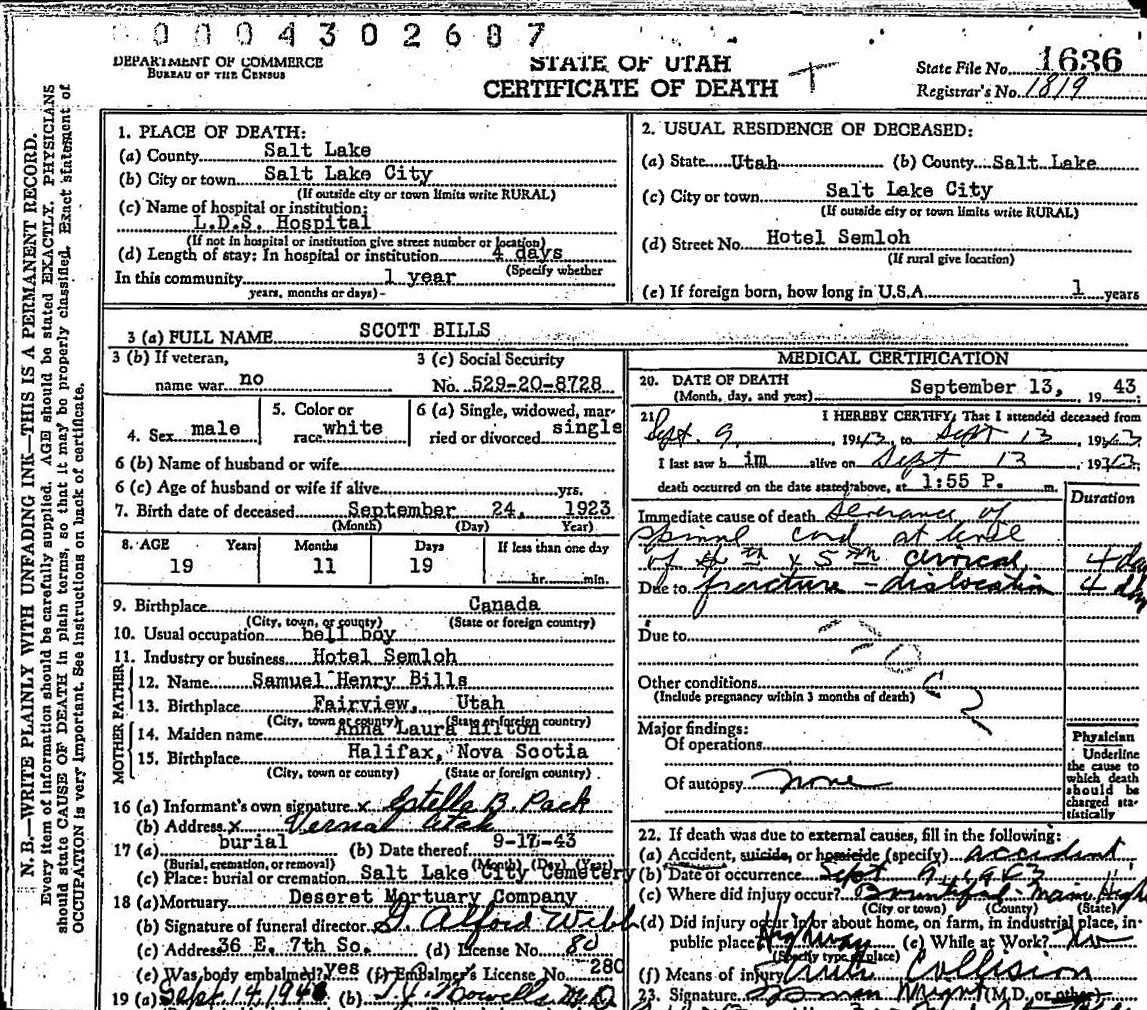 0 0 0 4 3 0 2 6 8 7
DEPARTMENT OF COMMERCE
BUREAU OF THE CENSUS
STATE OF UTAH
CERTIFICATE OF DEATH
State File No. 1636
Registrar's No. 1819
N. B.—WRITE PLAINLY WITH UNFADING INK—THIS IS A PERMANENT RECORD.
Every item of information should be carefully supplied. AGE should be stated EXACTLY. PHYSICIANS
should state CAUSE OF DEATH in plain terms, so that it may be properly classified. Exact statement of
OCCUPATION is very important. See instructions on back of certificate.
1. PLACE OF DEATH:
(a) County Salt Lake
(b) City or town Salt Lake City
(If outside city or town limits write RURAL)
(c) Name of hospital or institution:
L.D.S. Hospital
(If not in hospital or institution give street number or location)
(d) Length of stay: In hospital or institution 4 days
(Specify whether
In this community 1 year
years, months or days)
2. USUAL RESIDENCE OF DECEASED:
(a) State Utah (b) County Salt Lake
(c) City or town Salt Lake City
(If outside city or town limits write RURAL)
(d) Street No. Hotel Semloh
(If rural give location)
(e) If foreign born, how long in U.S.A. 1 years
3 (a) FULL NAME SCOTT BILLS
3 (b) If veteran,
name war no
3 (c) Social Security
No. 529-20-8728
4. Sex male
5. Color or
race white
6 (a) Single, widowed, mar-
ried or divorced single
6 (b) Name of husband or wife
6 (c) Age of husband or wife if alive yrs.
7. Birth date of deceased September 24, 1923
(Month) (Day) Year)
8. AGE Years Months Days If less than one day
19 11 19 hr. min.
9. Birthplace Canada
(City, town, or county) (State or foreign country)
10. Usual occupation bell boy
11. Industry or business Hotel Semloh
FATHER
12. Name Samuel Henry Bills
13. Birthplace Fairview, Utah
(City, town or county) (State or foreign country)
MOTHER
14. Maiden name Anna Laura Hilton
15. Birthplace Halifax, Nova Scotia
(City, town or county) (State or foreign country)
16 (a) Informant's own signature x Estella B. Pack
(b) Address x Vernal Utah
17 (a) burial (b) Date thereof 9-17-43
(Burial, cremation, or removal) (Month) (Day) (Year)
(c) Place: burial or cremation Salt Lake City Cemetery
18 (a) Mortuary Deseret Mortuary Company
(b) Signature of funeral director G. Alford Webb
(c) Address 36 E. 7th So. (d) License No. 80
(e) Was body embalmed? yes (f) Embalmer's License No. 280
19 (a) Sept. 14, 194 (b) M.D.
MEDICAL CERTIFICATION
20. DATE OF DEATH
(Month, day, and year) September 13, 19 43
21. I HEREBY CERTIFY, That I attended deceased from
Sept. 9, 1943, to Sept 13, 1943
I last saw h im alive on Sept 13, 1943
death occurred on the date stated above, at 1:55 P. m.
Duration
Immediate cause of death Severance of
spinal cord at level
of 4th & 5th cervical 4 day
Due to fracture-dislocation 4 day
Due to
Other conditions
(Include pregnancy within 3 months of death)
Major findings:
Of operations
Of autopsy none
Physician
Underline
the cause to
which death
should be
charged sta-
tistically
22. If death was due to external causes, fill in the following:
(a) Accident, suicide, or homicide (specify) accident
(b) Date of occurrence Sept 9, 1943
(c) Where did injury occur? Bountiful - Main High
(City or town) (County) (State)
(d) Did injury occur in or about home, on farm, in industrial place, in
public place? Highway (e) While at Work? no
(Specify type of place)
(f) Means of injury Truck Collision
23. Signature (M.D. or other)